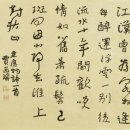 江漢曾為客相逢每
醉還浮雲一別後
流水十年間歡笑
情如舊蕭疏鬢已
斑何因北歸去淮上
對秋山